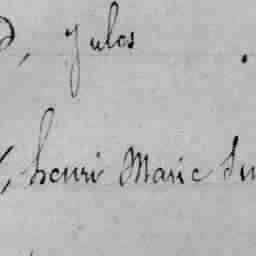 , Jules .
, henri Marie